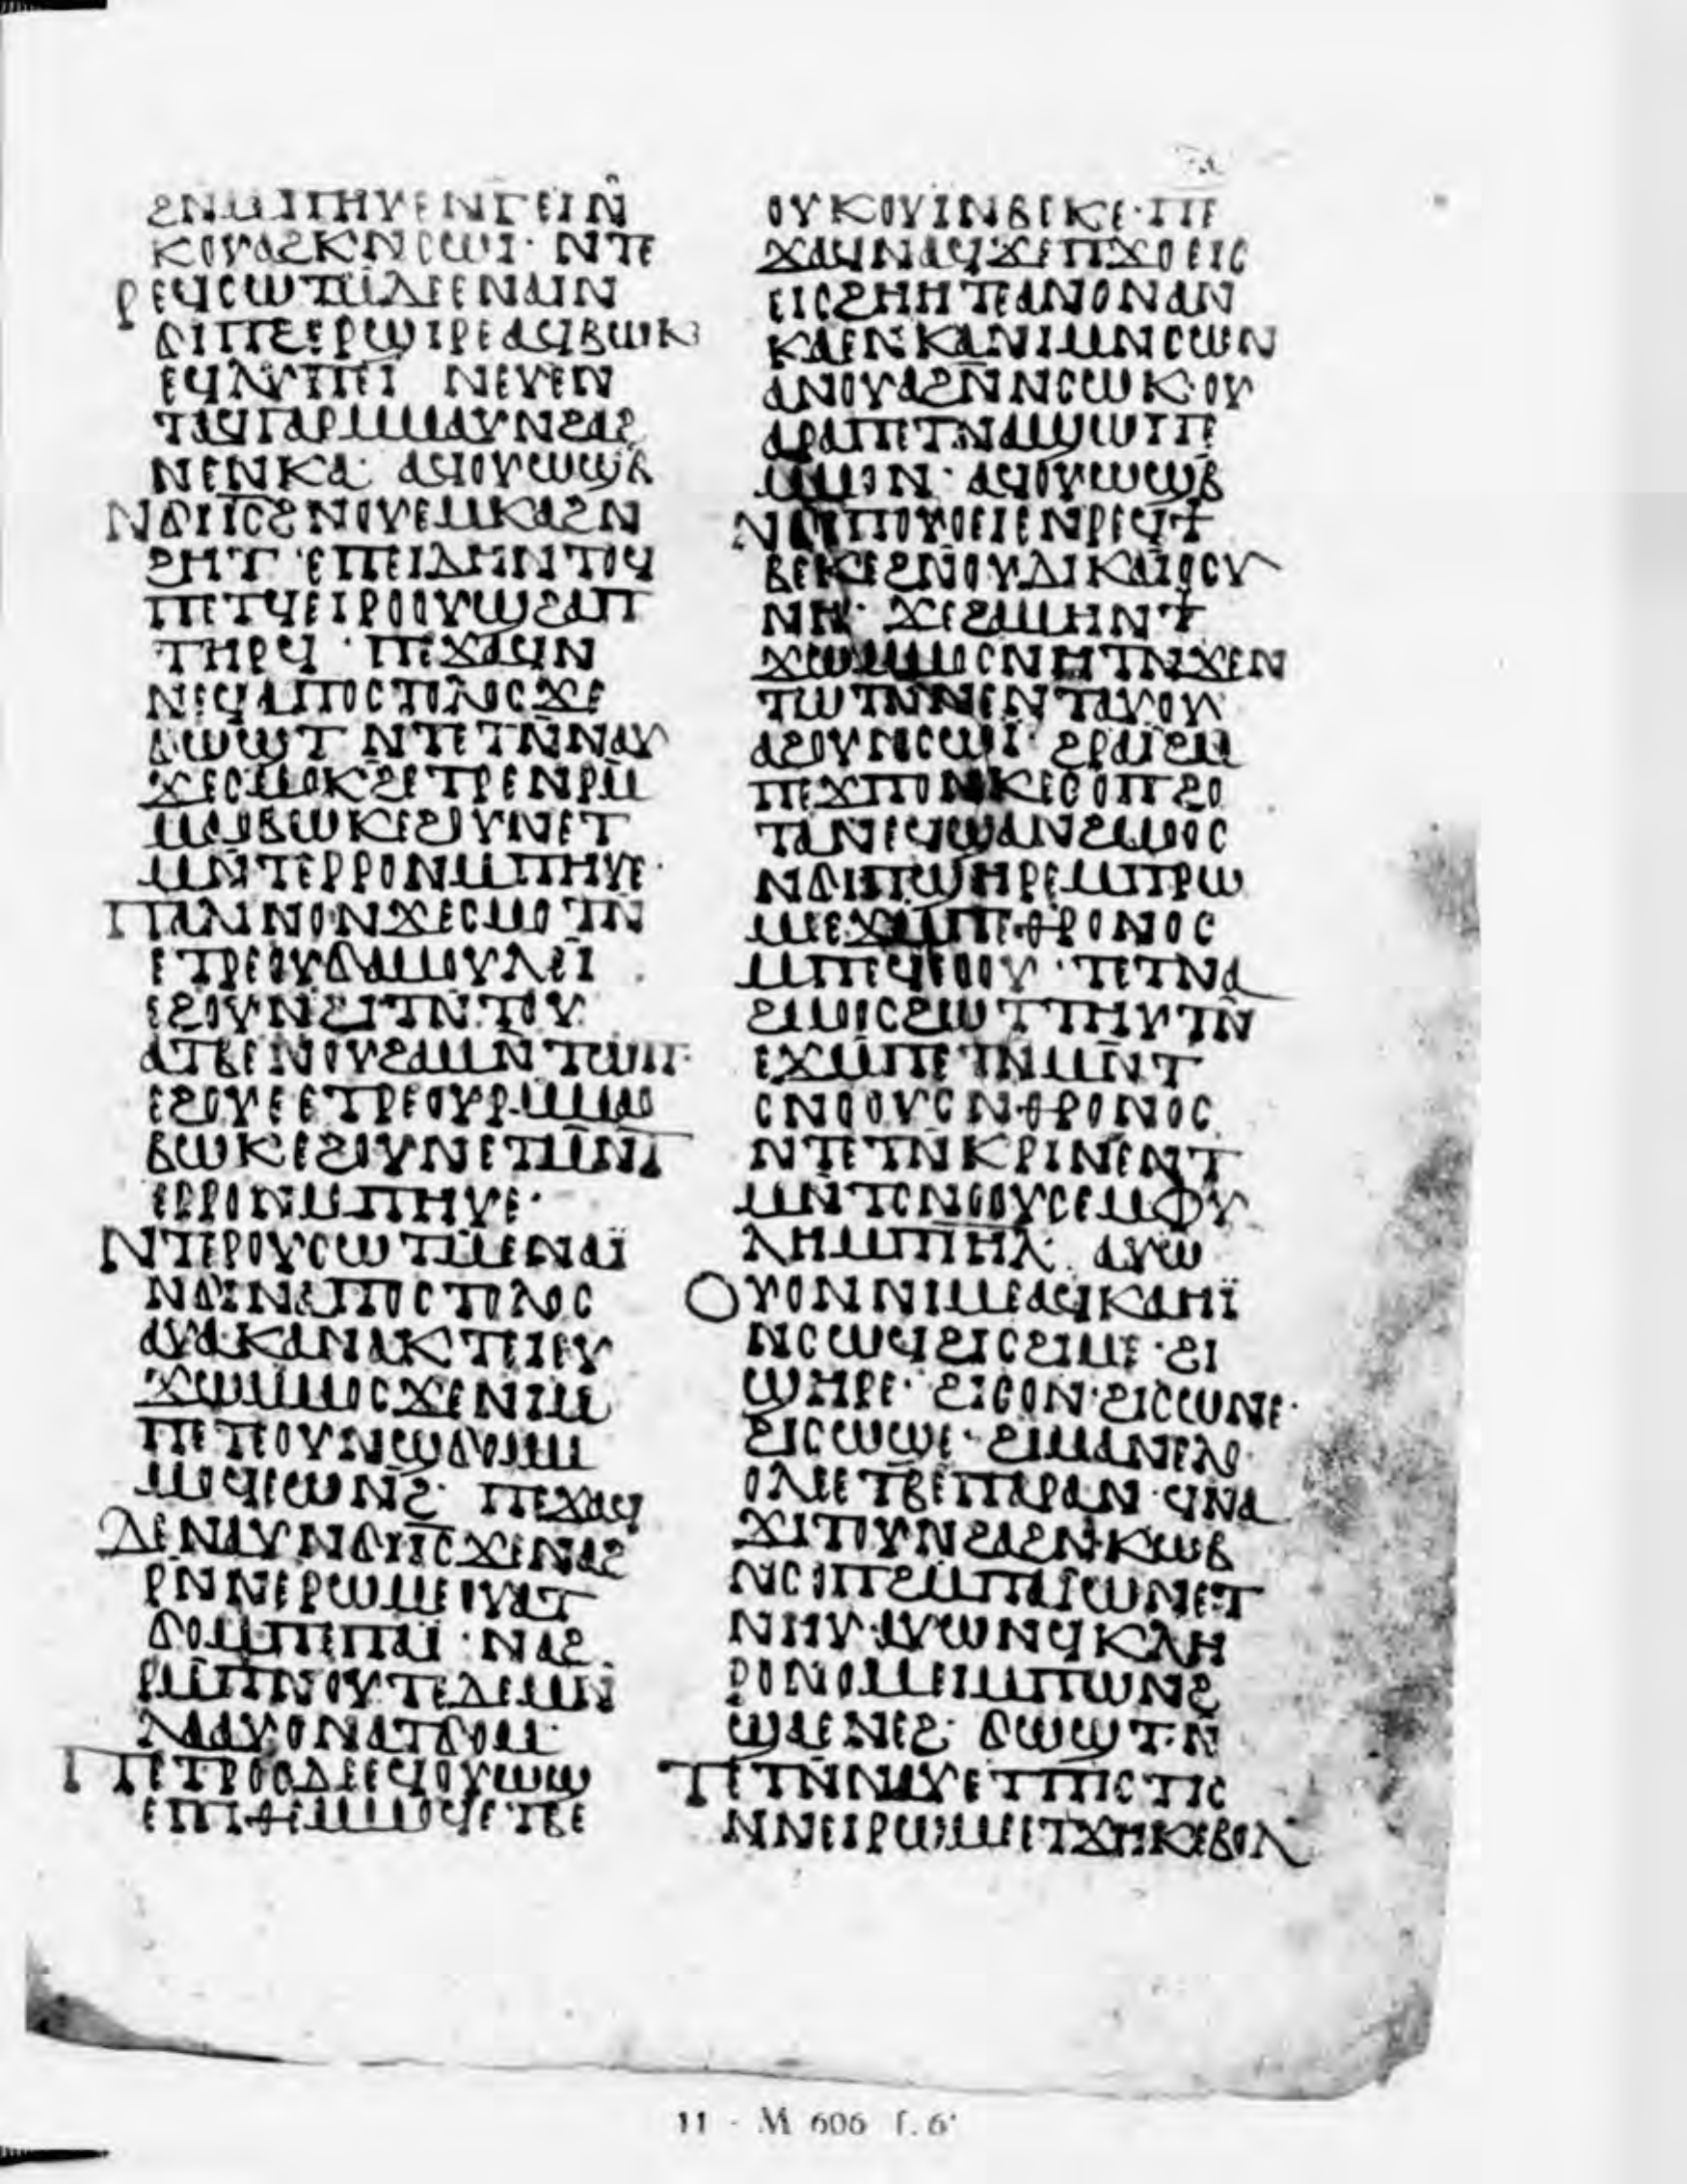 ϩⲛⲙⲡⲏⲩⲉⲛⲅⲉⲓⲛ̄
ⲕⲟⲩⲁϩⲕⲛⲥⲱⲓ· ⲛⲧⲉ
ⲣⲉϥⲥⲱⲧⲙ̄ⲇⲉⲉⲛⲁⲓⲛ
ϭⲓⲡϩⲉⲣϣⲓⲣⲉⲁϥⲃⲱⲕ
ⲉϥⲗⲩⲡⲉⲓ ⲛⲉⲩⲉⲛ
ⲧⲁϥⲅⲁⲣⲙⲙⲁⲩⲛϩⲁϩ
ⲛⲉⲛⲕⲁ· ⲁϥⲟⲩⲱϣⲃ
ⲛϭⲓⲡⲥ̄ϩⲛⲟⲩⲉⲙⲕⲁϩⲛ
ϩⲏⲧ· ⲉⲡⲉⲓⲇⲏⲛⲧⲟϥ
ⲡⲉⲧϥⲉⲓⲣⲟⲟⲩϣϩⲁⲡ
ⲧⲏⲣϥ· ⲡⲉϫⲁϥⲛ
ⲛⲉϥⲁⲡⲟⲥⲧⲟⲗⲟⲥϫⲉ
ϭⲱϣⲧ ⲛⲧⲉⲧⲛ̄ⲛⲁⲩ
ϫⲉⲥⲙⲟⲕϩⲉⲧⲣⲉⲛⲣⲙ̄
ⲙⲁⲟⲃⲱⲕⲉϩⲟⲩⲛⲉⲧ
ⲙⲛ̄ⲧⲉⲣⲣⲟⲛⲙⲡⲏⲩⲉ·
ⲡⲁⲗⲓⲛⲟⲛϫⲉⲥⲙⲟⲧⲛ̄
ⲉⲧⲣⲉⲟⲩϭⲁⲙⲟⲩⲗⲉⲓ̈
ⲉϩⲟⲩⲛϩⲓⲧⲛ̄ⲧⲟⲩ
ⲁⲧⲃⲉⲛⲟⲩϩⲁⲙⲛ̄ⲧⲱⲡ·
ⲉϩⲟⲩⲉⲉⲧⲣⲉⲟⲩⲣⲙⲙⲁⲟ
ⲃⲱⲕⲉϩⲟⲩⲛⲉⲧⲙⲛ̄ⲧ
ⲉⲣⲣⲟⲛⲙⲡⲏⲩⲉ·
ⲛⲧⲉⲣⲟⲩⲥⲱⲧⲙ̄ⲉⲛⲁⲓ̈
ⲛϭⲓⲛⲁⲡⲟⲥⲧⲟⲗⲟⲥ
ⲁⲩⲁⲕⲁⲛⲁⲕⲧⲉⲓⲉⲩ
ϫⲱⲙⲙⲟⲥϫⲉⲛⲓⲙ
ⲡⲉⲧⲉⲟⲩⲛϣϭⲟⲙ
ⲙⲟϥⲉⲱⲛϩ̄· ⲡⲉϫⲁϥ
ⲇⲉⲛⲁⲩⲛϭⲓⲡⲥ̄ϫⲉⲛⲁϩ
ⲣⲛⲛⲉⲣⲱⲙⲉⲟⲩⲁⲧ
ϭⲟⲙⲡⲉⲡⲁⲓ̈· ⲛⲁϩ
ⲣⲙ̄ⲡⲛⲟⲩⲧⲉⲇⲉⲙⲛ̄
ⲗⲁⲁⲩⲟⲛⲁⲧϭⲟⲙ·
ⲡⲉⲧⲣⲟⲥⲇⲉⲉϥⲟⲩⲱϣ
ⲉⲡⲓⲑⲉⲙⲙⲟϥⲉⲧⲃⲉ
ⲟⲩⲕⲟⲩⲓⲛⲃⲉⲕⲉ· ⲡⲉ
ϫⲁϥⲛⲁϥϫⲉⲡϫⲟⲉⲓⲥ
ⲉⲓⲥϩⲏⲏⲧⲉⲁⲛⲟⲛⲁⲛ
ⲕⲁⲉⲛⲕⲁⲛⲓⲙⲛⲥⲱⲛ
ⲁⲛⲟⲩⲁϩⲛ̄ⲛⲥⲱⲕ· ⲟⲩ
ⲁⲣⲁⲡⲉⲧⲛⲁϣⲱⲡⲉ
ⲙⲙⲟⲛ· ⲁϥⲟⲩⲱϣⲃ
ⲛϭⲓⲡⲟⲩⲟⲉⲓⲉⲛⲣⲉϥϯ
ⲃⲉⲕⲉϩⲛ̄ⲟⲩⲇⲓⲕⲁⲓⲟⲥⲩ
ⲛⲏ· ϫⲉϩⲁⲙⲏⲛϯ
ϫⲱⲙⲙⲟⲥⲛⲏⲧⲛ̄ϫⲉⲛ
ⲧⲱⲧⲛ̄ⲛⲉⲛⲧⲁⲩⲟⲩ
ⲁϩⲟⲩⲛⲥⲱⲓ̈· ϩⲣⲁⲓ̈ϩⲙ
ⲡⲉϫⲡⲟⲛⲕⲉⲥⲟⲡϩⲟ
ⲧⲁⲛⲉϥϣⲁⲛϩⲙⲟⲟⲥ
ⲛϭⲓⲡϣⲏⲣⲉⲙⲡⲣⲱ
ⲙⲉϫⲙ̄ⲡⲉⲑⲣⲟⲛⲟⲥ
ⲙⲡⲉϥⲉⲟⲟⲩ· ⲧⲉⲧⲛⲁ
ϩⲙⲟⲟⲥϩⲱⲧⲧⲏⲩⲧⲛ̄
ⲉϫⲙ̄ⲡⲉⲧⲛ̄ⲙⲛ̄ⲧ
ⲥⲛⲟⲟⲩⲥⲛⲑⲣⲟⲛⲟⲥ
ⲛⲧⲉⲧⲛ̄ⲕⲣⲓⲛⲉⲛⲧ
ⲙⲛ̄ⲧⲥⲛⲟⲟⲩⲥⲉⲙⲫⲩ
ⲗⲏⲙⲡⲓⲏ̄ⲗ̄· ⲁⲩⲱ
ⲟⲩⲟⲛⲛⲓⲙⲉⲁϥⲕⲁⲏⲓ̈
ⲛⲥⲱϥϩⲓⲥϩⲓⲙⲉ· ϩⲓ
ϣⲏⲣⲉ· ϩⲓⲥⲟⲛ· ϩⲓⲥⲱⲛⲉ·
ϩⲓⲥⲱϣⲉ· ϩⲓⲙⲁⲛⲉⲗⲟ
ⲟⲗⲉⲉⲧⲃⲉⲡⲁⲣⲁⲛ· ϥⲛⲁ
ϫⲓⲧⲟⲩⲛϩⲁϩⲛⲕⲱⲃ
ⲛⲥⲟⲡϩⲙ̄ⲡⲁⲓⲱⲛⲉⲧ
ⲛⲏⲩ· ⲁⲩⲱⲛϥⲕⲗⲏ
ⲣⲟⲛⲟⲙⲉⲓⲙⲡⲱⲛϩ
ϣⲁⲉⲛⲉϩ· ϭⲱϣⲧ·ⲛ̄
ⲧⲉⲧⲛ̄ⲛⲁⲩⲉⲧⲡⲓⲥⲧⲓⲥ
ⲛⲛⲉⲓⲣⲱⲙⲉⲉⲧϫⲏⲕⲉⲃⲟⲗ
11 - M 606 f. 6ʳ